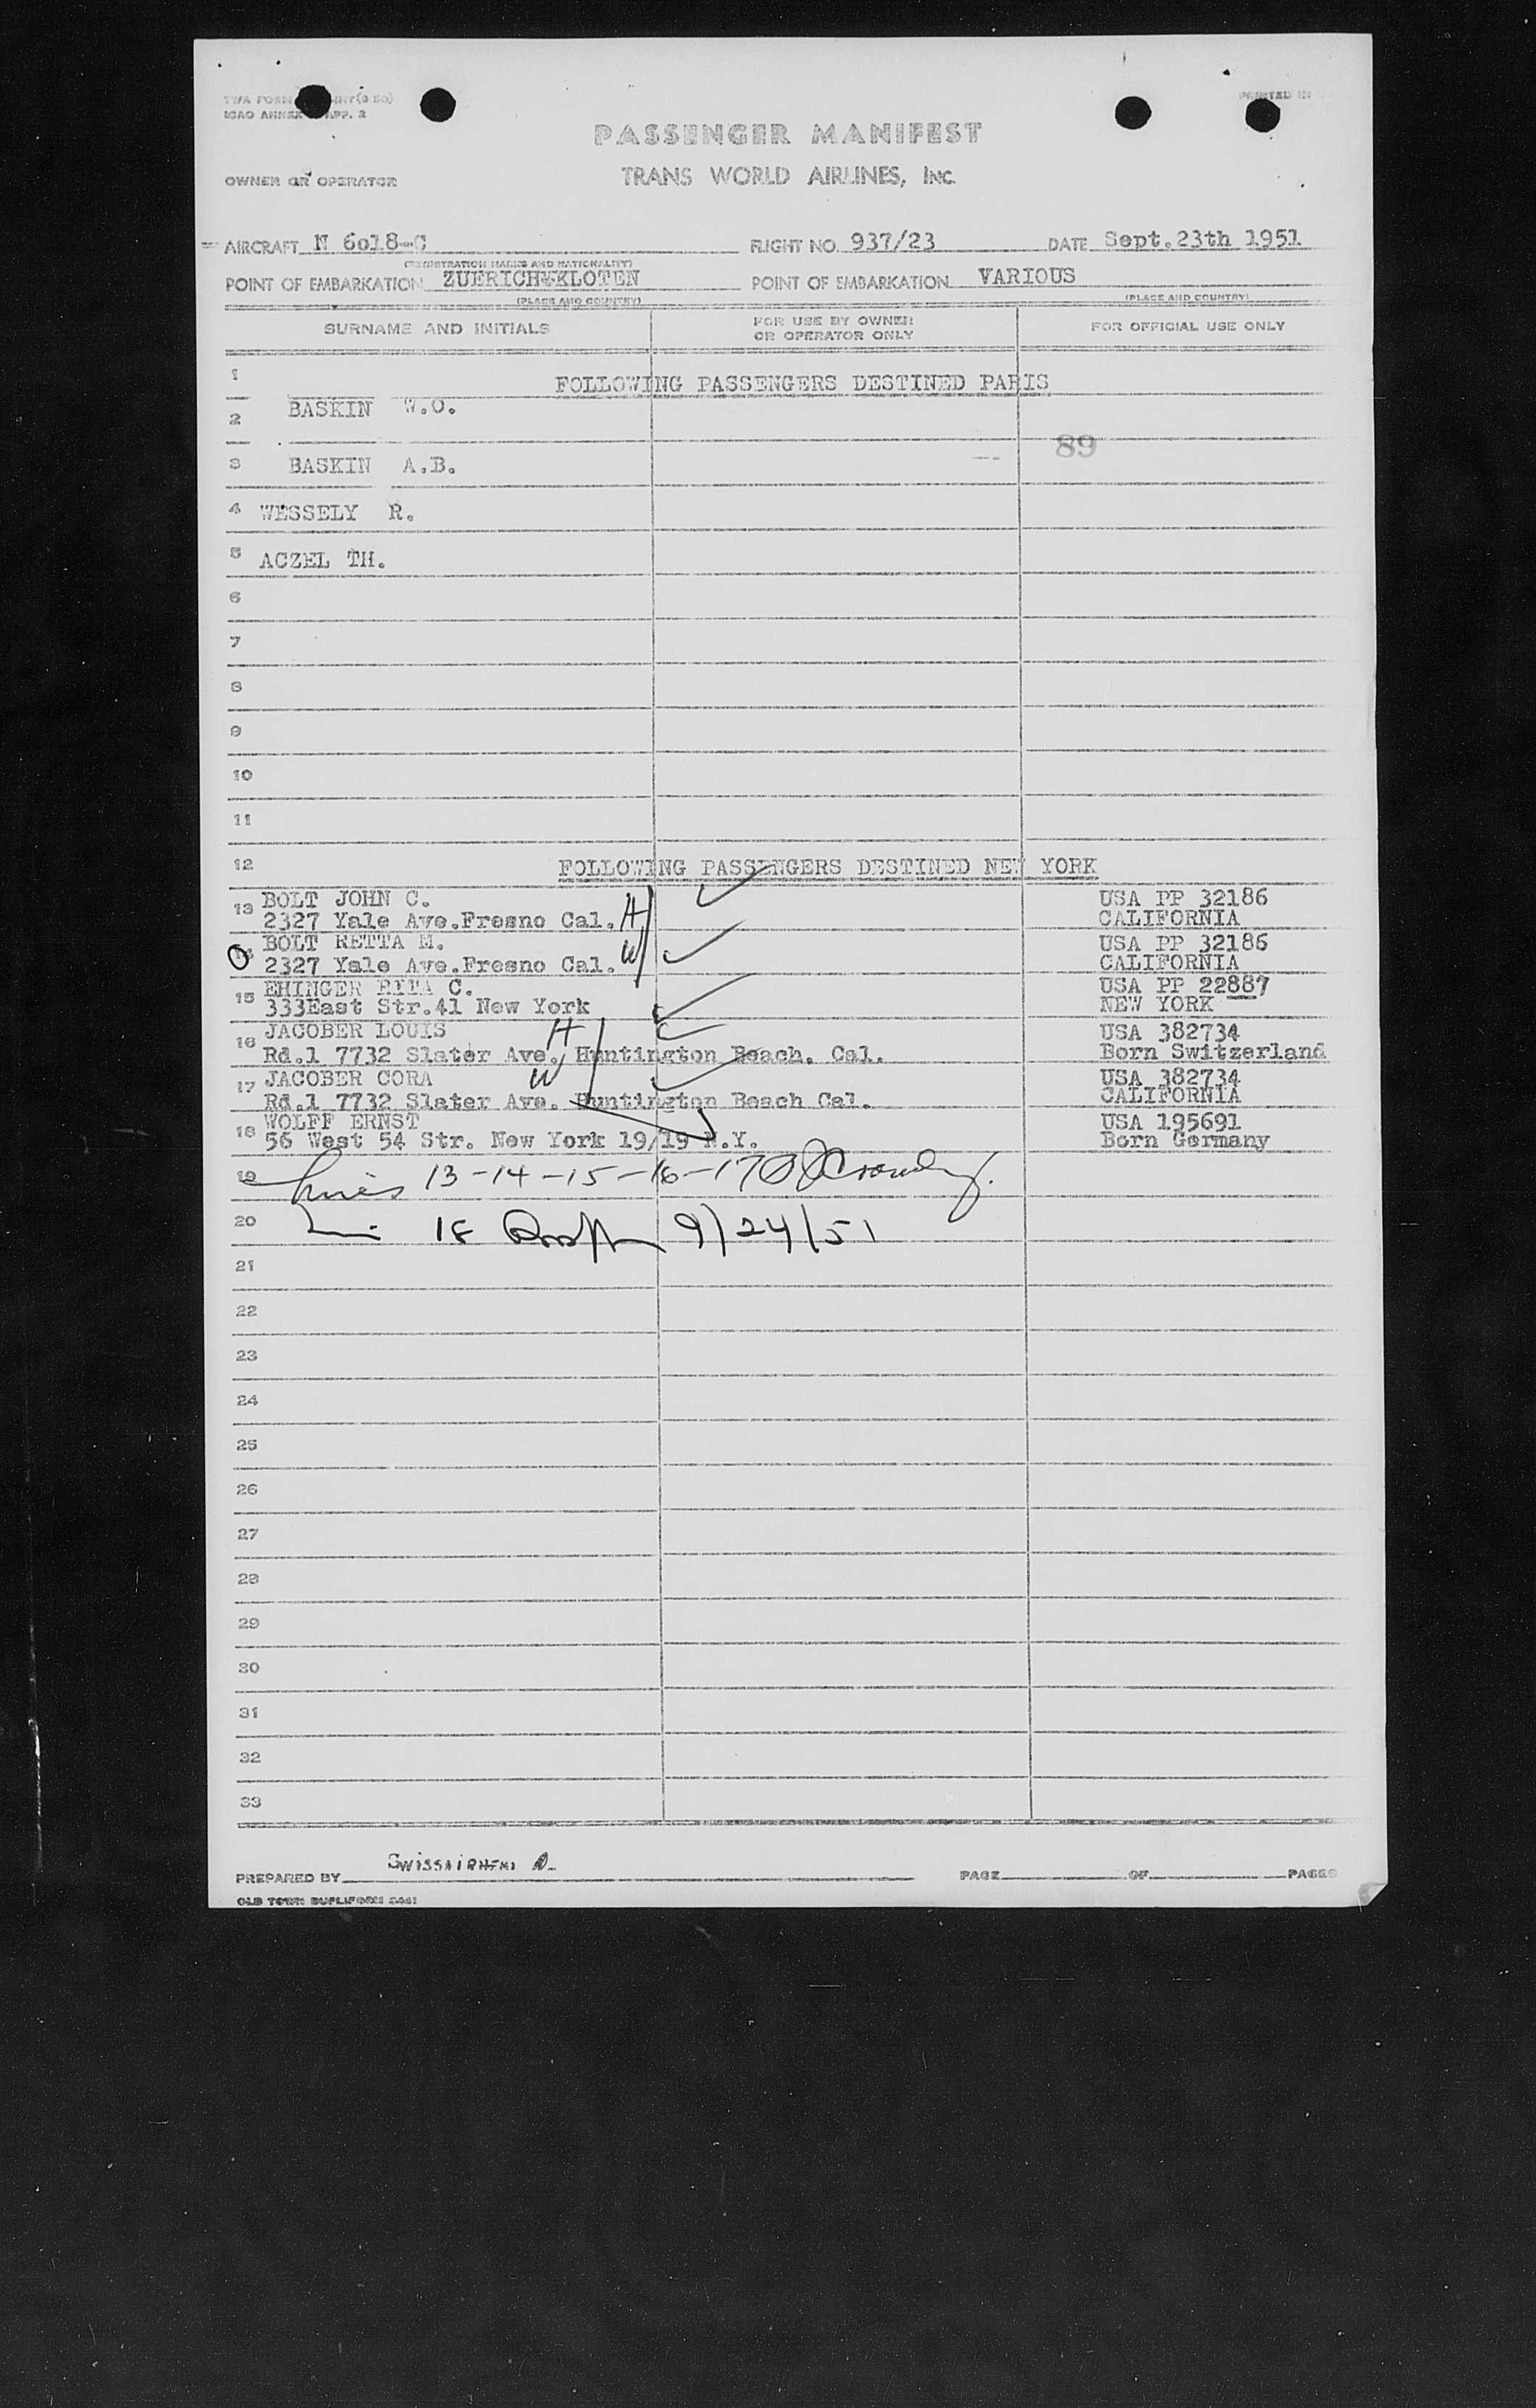 TWA FORM
ICAO ANNEX APP. 2
PRINTED IN
PASSENGER MANIFEST
TRANS WORLD AIRLINES, INC.
OWNER OR OPERATOR
AIRCRAFT N 6018-C FLIGHT NO. 937/23 DATE Sept.23th 1951
(REGISTRATION MARKS AND NATIONALITY)
POINT OF EMBARKATION ZUERICH-KLOTEN POINT OF EMBARKATION VARIOUS
(PLACE AND COUNTRY) (PLACE AND COUNTRY)
SURNAME AND INITIALS FOR USE BY OWNER OR OPERATOR ONLY FOR OFFICIAL USE ONLY
1 FOLLOWING PASSENGERS DESTINED PARIS
2 BASKIN W.O.
89
3 BASKIN A.B.
4 WESSELY R.
5 ACZEL TH.
6
7
8
9
10
11
12 FOLLOWING PASSENGERS DESTINED NEW YORK
13 BOLT JOHN C. USA PP 32186
2327 Yale Ave.Fresno Cal. H CALIFORNIA
14 BOLT RETTA M. USA PP 32186
2327 Yale Ave.Fresno Cal. W CALIFORNIA
15 EHINGER RITA C. USA PP 22887
333East Str.41 New York NEW YORK
16 JACOBER LOUIS H USA 382734
Rd.1 7732 Slater Ave. Huntington Beach. Cal. Born Switzerland
17 JACOBER CORA W USA 382734
Rd.1 7732 Slater Ave. Huntington Beach Cal. CALIFORNIA
18 WOLFF ERNST USA 195691
56 West 54 Str. New York 19/19 N.Y. Born Germany
19 Lines 13-14-15-16-17
20 18 9/24/51
21
22
23
24
25
26
27
28
29
30
31
32
33
PREPARED BY PAGE OF PAGES
OLD TOWN DUPLIFORM